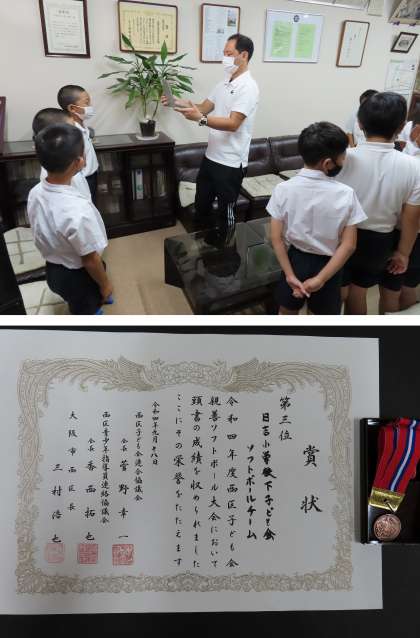 賞状
第三位
日吉小学校下子ども会
ソフトボールチーム
令和四年度西区子ども会
親善ソフトボール大会において
頭書の成績を収められました
ここにその栄誉をたたえます
令和四年九月十八日
西区子ども会連合協議会
会長 菅野幸一
西区青少年指導員連絡協議会
会長 香西拓也
大阪市西区長
三村浩也